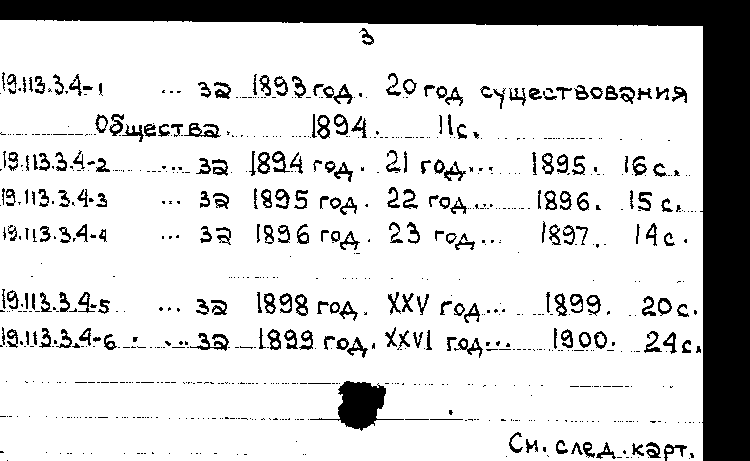 3
19.113.3.4-1 ... за 1893 год. 20 год существования
Общества. 1894. 11с.
19.113.3.4-2 ... за 1894 год. 21 год... 1895. 16с.
19.113.3.4-3 ... за 1895 год. 22 год... 1896. 15с.
19.113.3.4-4 ... за 1896 год. 23 год... 1897. 14с.
19.113.3.4-5 ... за 1898 год. XXV год... 1899. 20с.
19.113.3.4-6 ... за 1899 год. XXVI год... 1900. 24с.
См. след. карт.